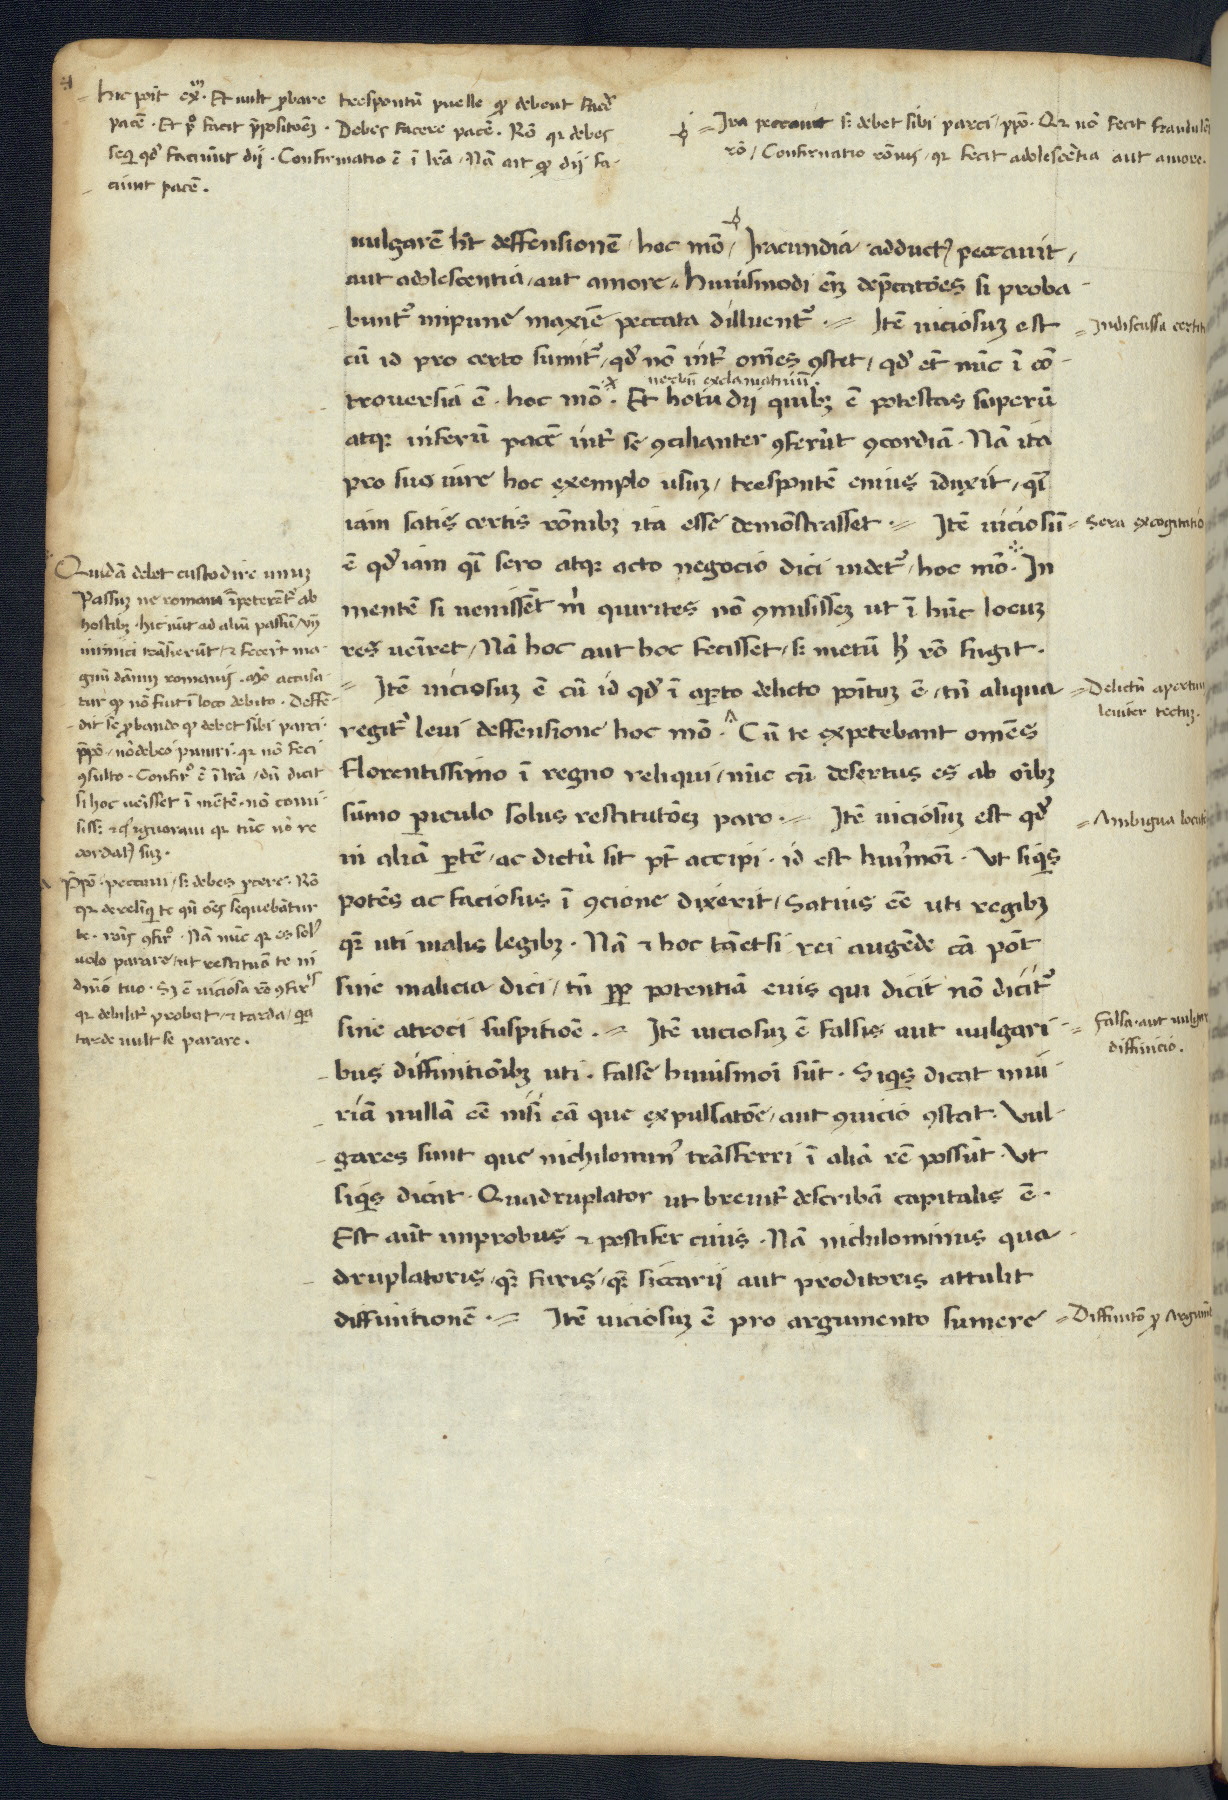 hic poīt exᵐ. Et uult ꝓbare trespontū puelle ꝙ debent facẽ
pacē. Et pº facit p̄positoēꝫ. Debes facere pacē. Rō qr debes
seqͥ qd̓ faciūnt dij. Confirmatio ē ī lrā, Nā ait ꝙ dij fa-
ciunt pacē.
Ira peccauit ꝫ debet sibi parci, ꝓpō. Qr nō fecit fraudulēt
rō, Confirmatio rōnis, qr fecit adolescētia aut amore.
uulgarē hn̄t deffensionē, hoc mō, Iracundia adductꝰ peccauit,
aut adolescentia, aut amore. Huiusmodi em̄ dep̄catōes si proba
buntᷣ impune maxīe peccata dilluentᷣ. Itē uiciosuꝫ est
cū id pro certo sumit᷑, qd̓ nō int̄ om̄es ꝯstet, qd̓ et̄ nūc ī cō-
uerbū exclamatiuū.
trouersia ē. hoc mō. Et hotu dij quibꝫ ē potestas superū
atqꝫ inferū pacē int̄ se ꝯcilianter ꝯferūt ꝯcordiā. Nā ita
pro suo iure hoc exemplo usuꝫ, trespontē enius īduxit, qͣi
iam satis certis rōnibꝫ ita esse demōstrasset. Itē uiciosū
ē qd̓ iam qͣi sero atqꝫ acto negocio dici uidet᷑, hoc mō. In
mentē si uenissēt m̄ quirites nō ꝯmisisseꝫ ut ī hūc locuꝫ
res ueīret, Nā hoc aut hoc fecisset, ꝫ metū h̓ rō fugit.
Itē uiciosuꝫ ē cū id qd̓ ī aꝑto delicto poītuꝫ ē, tn̄ aliqua
regit᷑ leui deffensione hoc mō. Cū te expetebant omēs
Florentissimo ī regno reliqui, nūc cū desertus es ab oībꝫ
sūmo ꝑiculo solus restitutōeꝫ paro. Itē uiciosuꝫ est qd̓
in aliā ꝑtē, ac dictū sit pt̄ accipi. id est huiꝰmōi. Ut siqͥs
potēs ac faciosus ī ꝯcione dixerit, Satius eē uti regibꝫ
qͣꝫ uti malis legibꝫ. Nā ⁊ hoc tāetsi rei augēde cā pōt
sine malicia dici, tn̄ ꝓp̄ potentiā euis qui dicit nō dicit᷑
sine atroci suspitiōe. Itē uiciosuꝫ ē falsis aut uulgari
bus diffinitiōibꝫ uti. False huiusmōi sūt. Siqͥs dicat iniu
riā nullā eē nisi eā que expulsatōe, aut ꝯuicio ꝯstat. Uul-
gares sunt que nichilominꝰ trāsferri ī aliā rē possūt. Ut
siqͥs dicat. Quadruplator ut breuit̄ describā capitalis ē.
Est aūt improbus ⁊ pestifer ciuis. Nā nichilominus qua
druplatoris, qͣꝫ furis, qͣꝫ siccarij aut proditoris attulit
diffinitionē. Itē uiciosuꝫ ē pro argumento sumere
Indiscussa certit
Sera excogitatio
Delictū apertum
leuiter tectuꝫ.
Ambigua locut
Falsa. aut uulgar
diffinicio.
Diffinitō ꝓ Argum̄t
Quidā debet custodire unuꝫ
Passuꝫ ne romani īpeterēt᷑ ab
hostibꝫ. hic iuit ad aliū passū, uñ
inimici trāsierūt, ⁊ fecert̄ ma-
gnū dānuꝫ romanis. Mō accusa-
tur ꝙ nō fiut ī loco debito. Deffē-
dit se ꝓbando ꝙ debet sibi parci.
p̄pō, nō debeo puniri. qr nō feci
ꝯsulto. Confirᵒ ē ī lrā, dū dicit
si hoc uēisset ī mētē. nō comi
sisse ⁊ ꝙ ignoraui qr tūc nō re
cordatꝰ suꝫ.
P̄pō. peccaui, ꝫ debes pcere. Rō
qr derelīq te qn̄ oēs sequebātur
te. rōis ꝯfirᵒ. Nā nūc qr es solꝰ
uolo parare, ut restituā te in
dn̄io tuo. Sꝫ ē uiciosa rō ꝯfirᵒ
qr debilit̄ probat, ⁊ tarda, qͥa
tarde uult se parare.